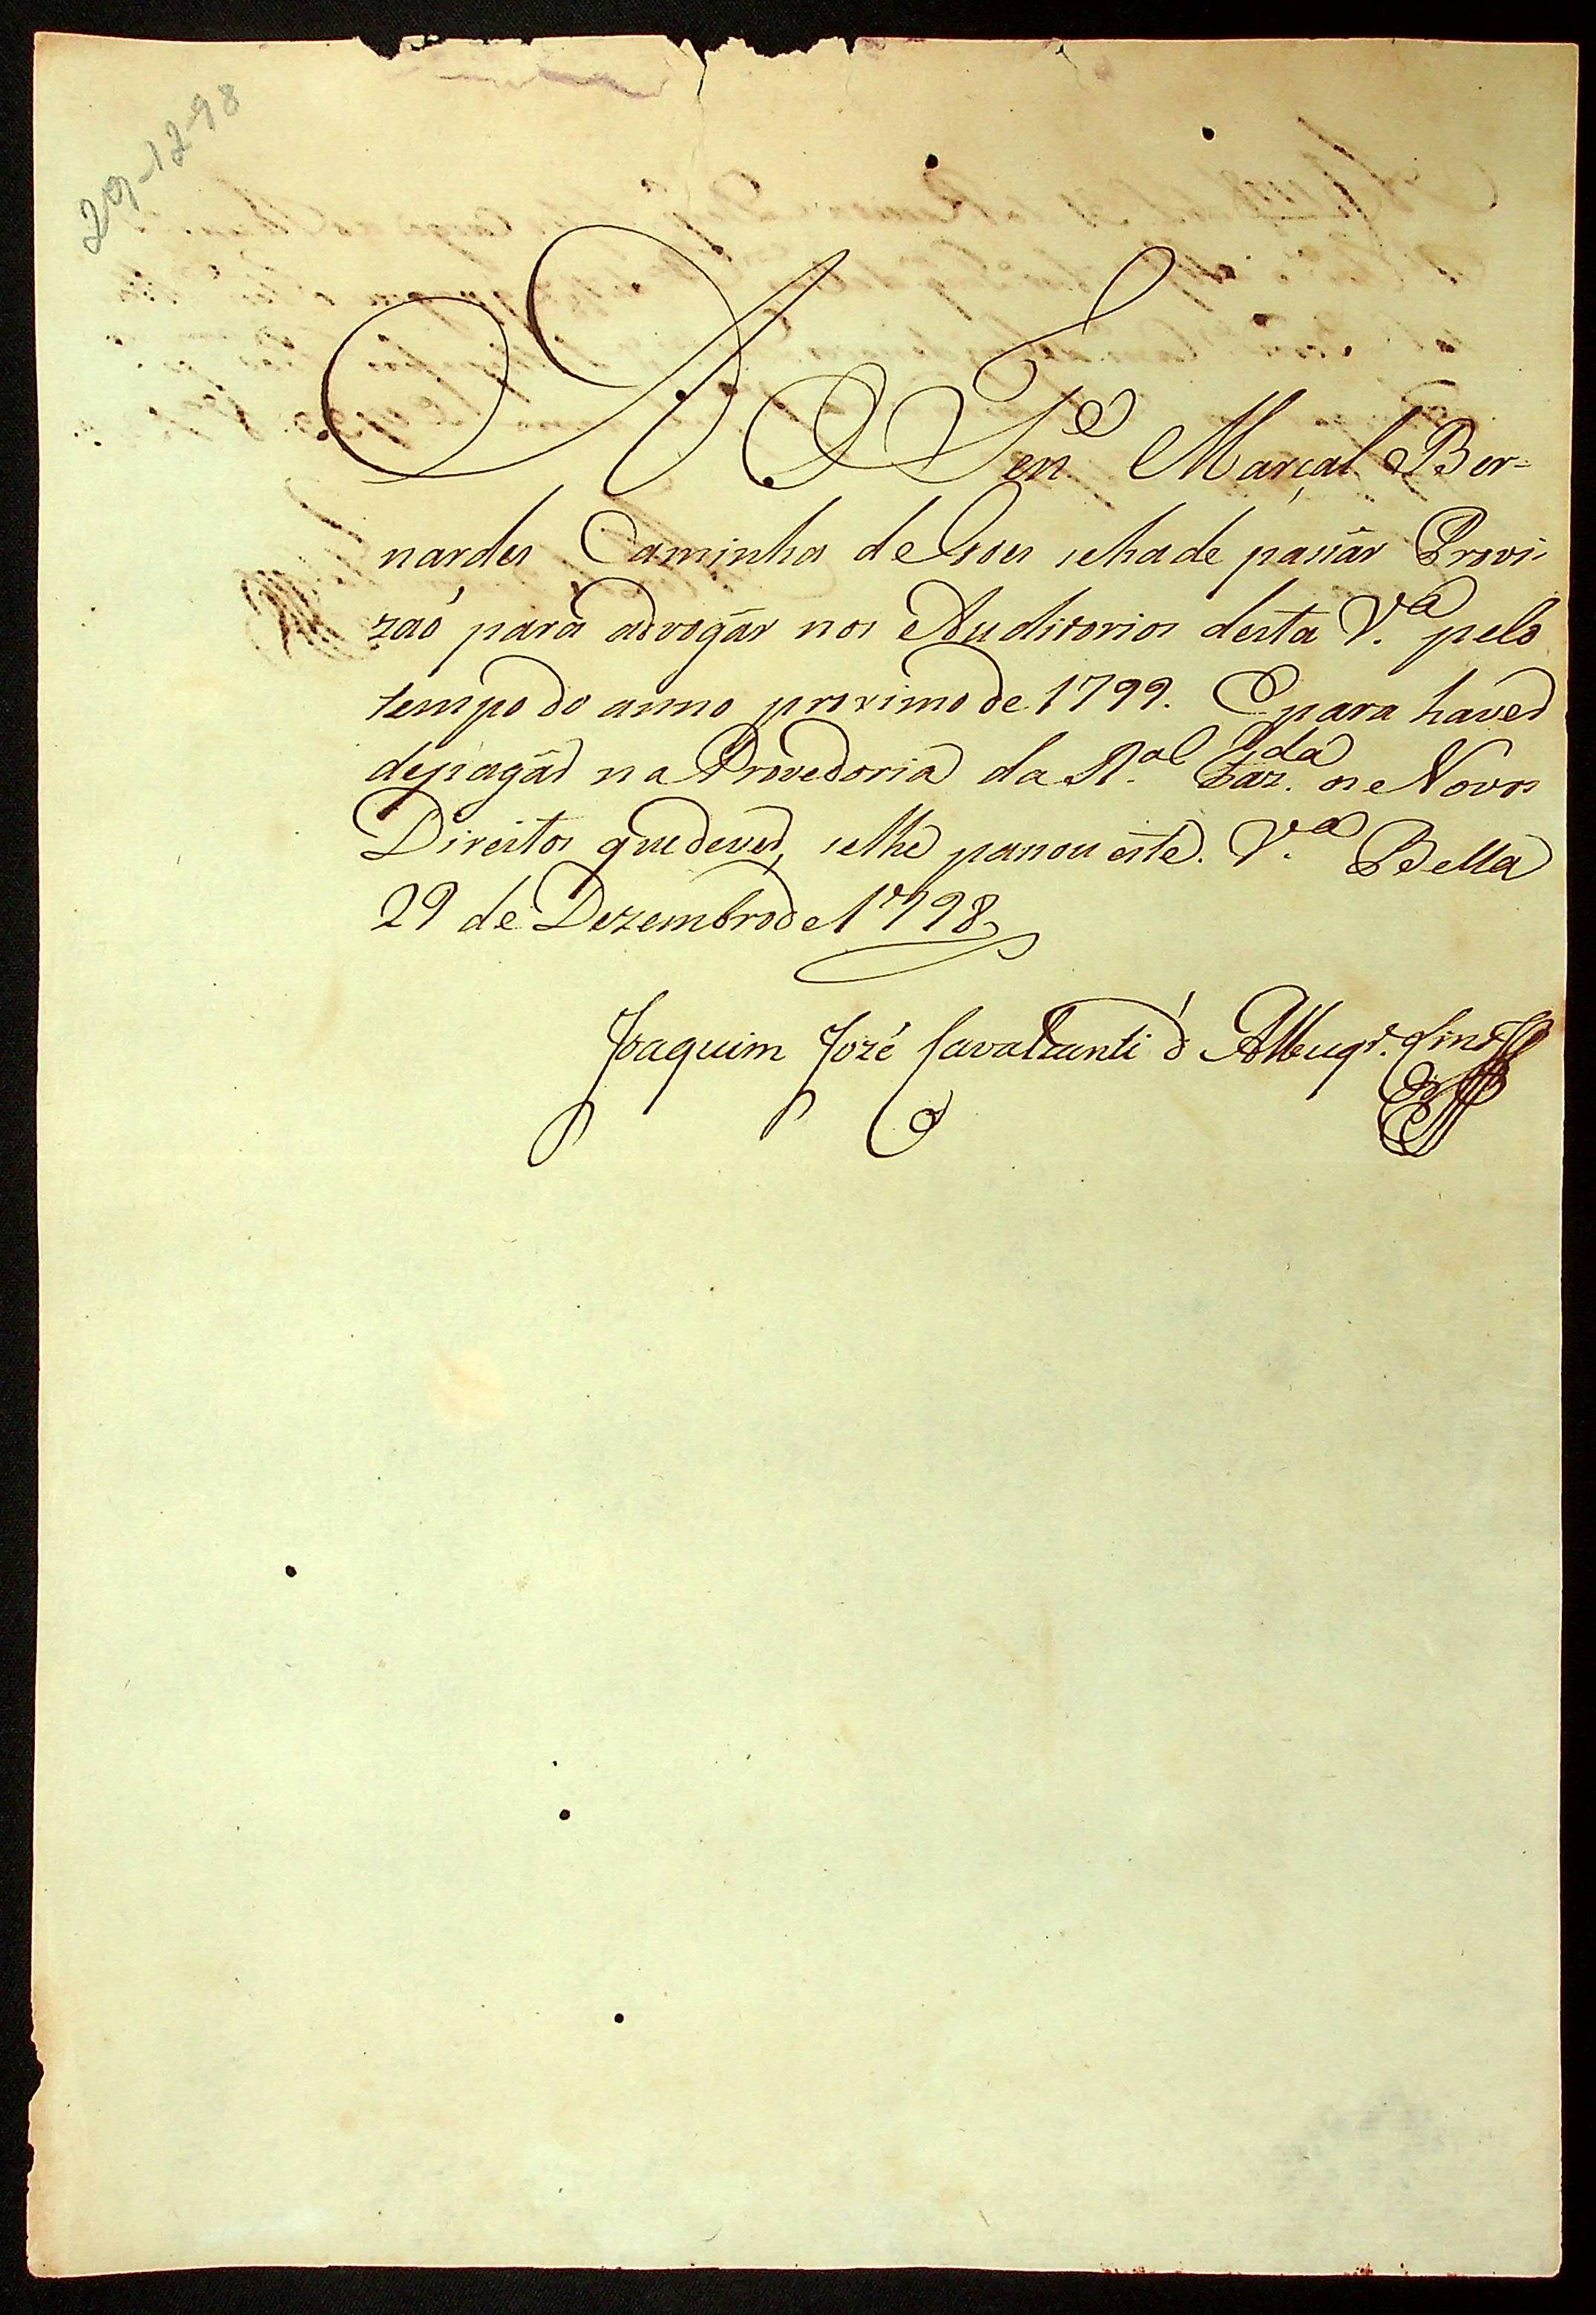 29-12-98
Ao Ten.e Marçal Ber=
nardes Caminha de Goes se ha de passár Provi-
zaó para advogár nos Auditorios desta V.a pelo
tempo do anno proximo de 1799. E para haver
de pagár na Provedoria da R.al Faz.da os Novos
Direitos que dever, se lhe passou éste. V.a Bella
29 de Dezembro de 1798
Joaquim José Cavalcanti d'Albuqr.e Lins